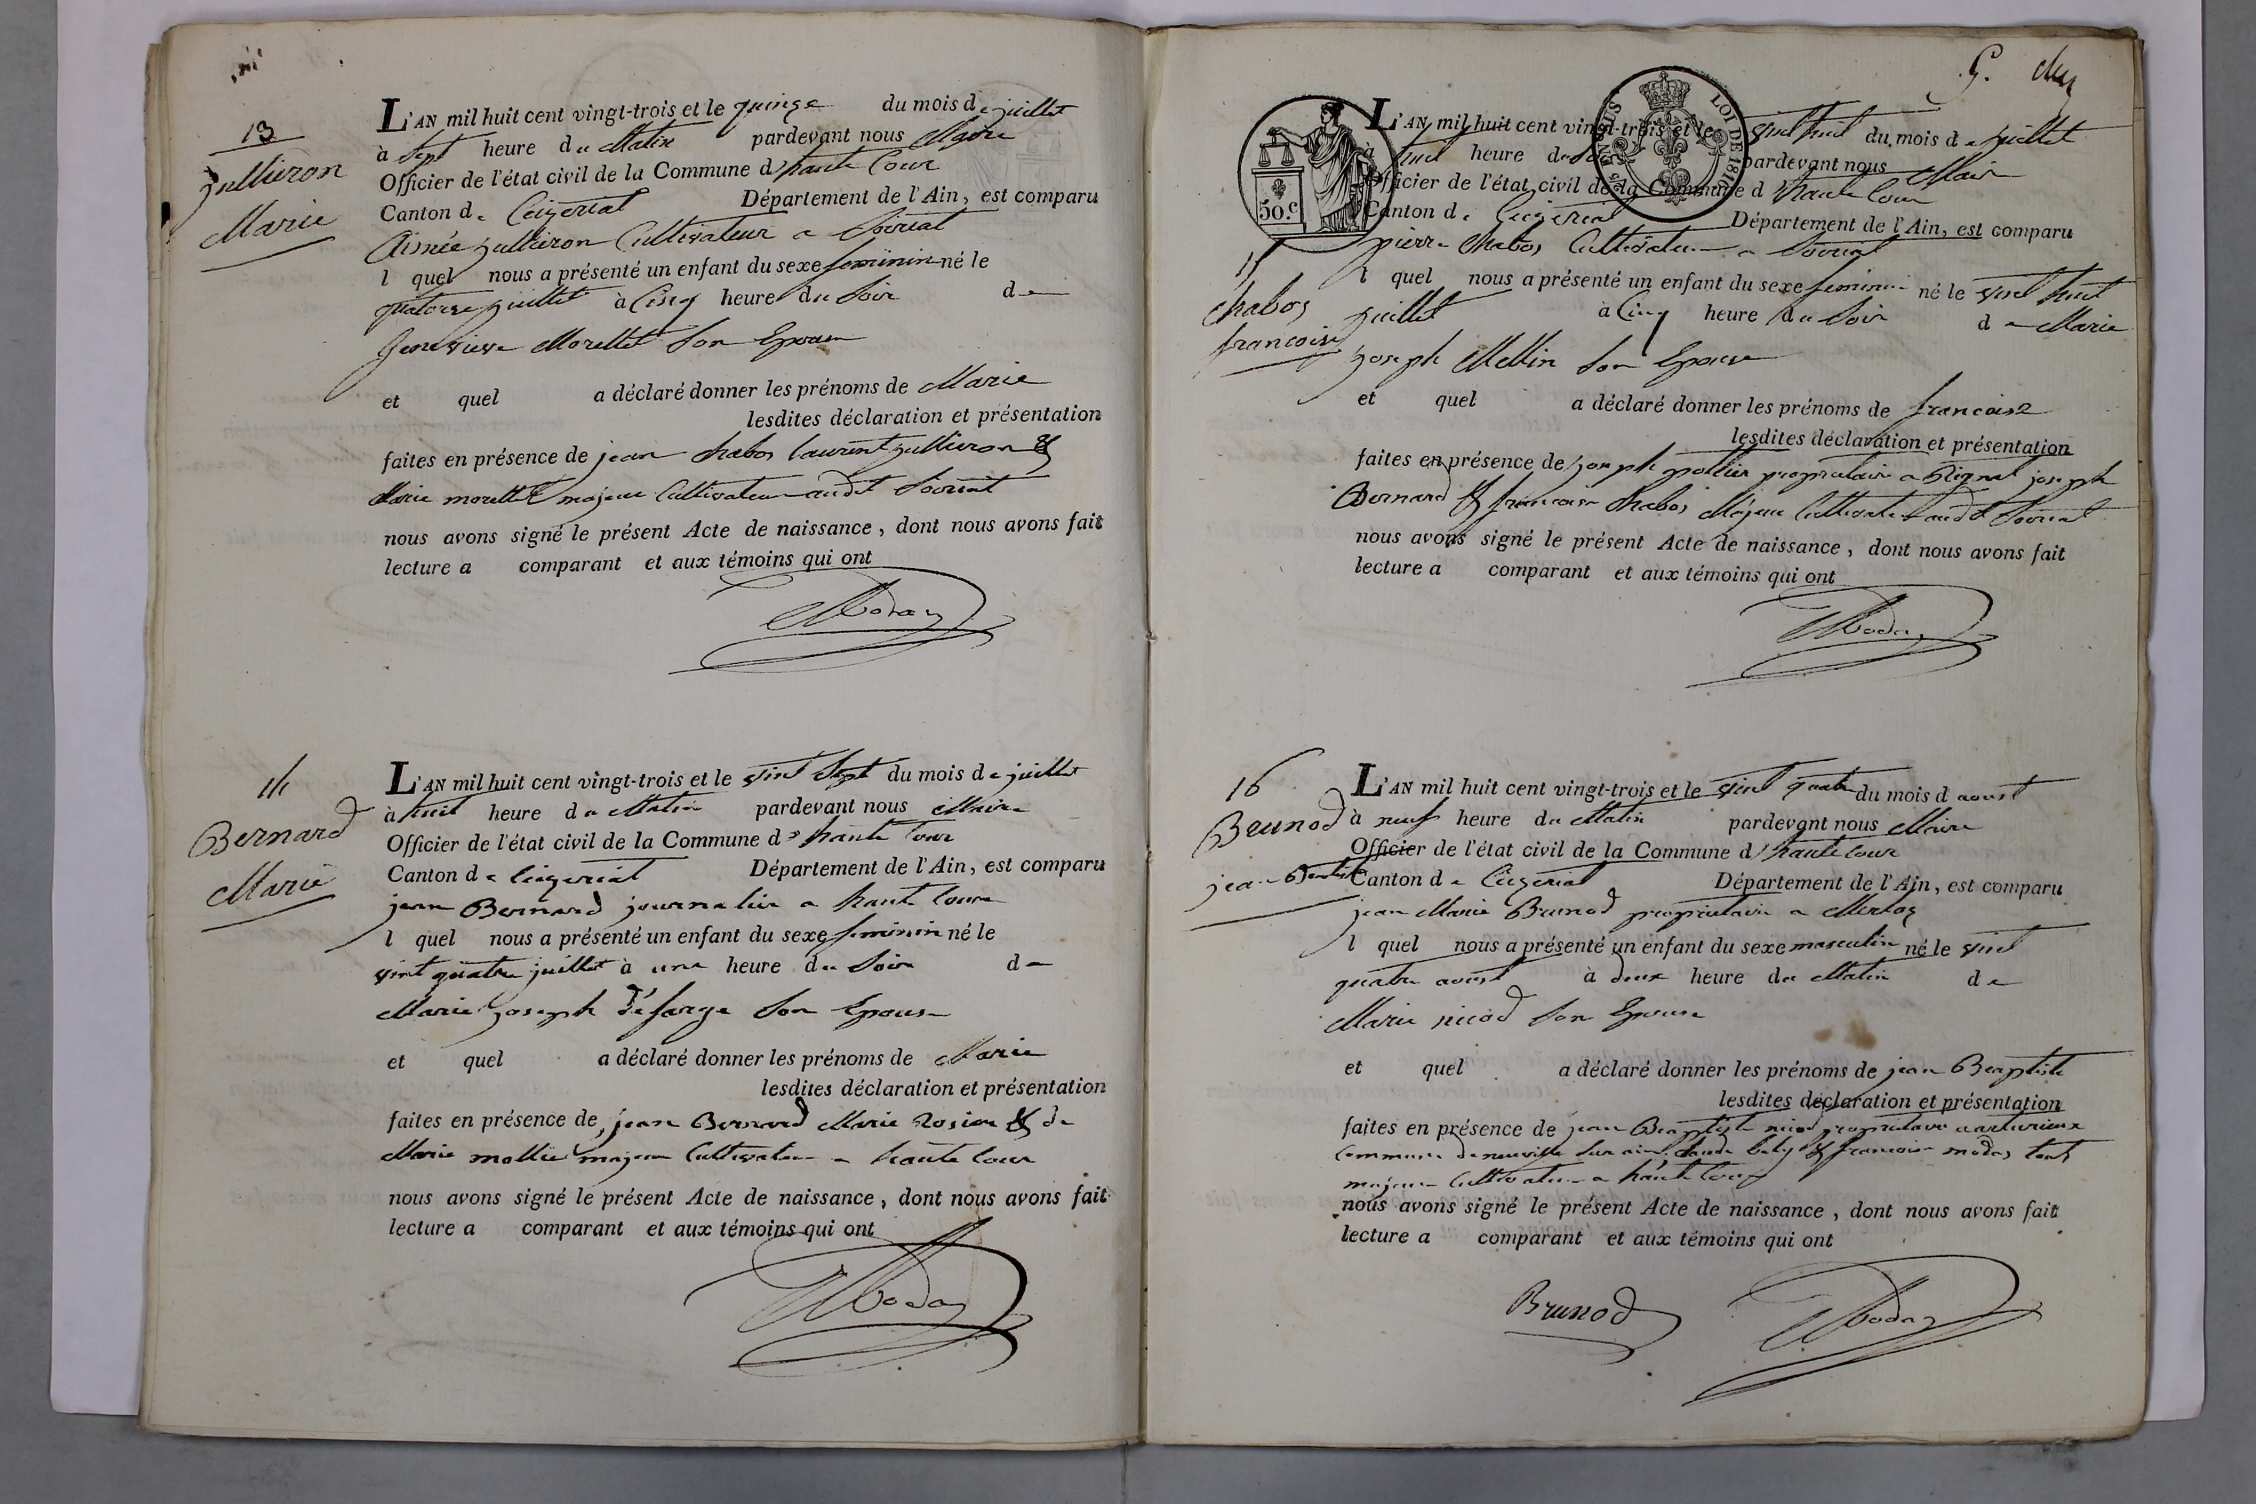 13
Jullieron
Marie
L'AN mil huit cent vingt-trois et le quinze du mois de juillet
à sept heure du Matin pardevant nous Maire
Officier de l'état civil de la Commune d'haute Cour
Canton de Ceizeriat Département de l'Ain, est comparu
Aimée Jullieron Cultivateur a Sovriat
l quel nous a présenté un enfant du sexe feminin né le
quatorze juillet à Cinq heure du Soir de
Genevieve Morellet son Epouse
et quel a déclaré donner les prénoms de Marie
lesdites déclaration et présentation
faites en présence de jean Chabos laurent Jullieron &
Marie morellet majeur Cultivateur audit Sovriat
nous avons signé le présent Acte de naissance, dont nous avons fait
lecture a comparant et aux témoins qui ont
Moday
14
Bernard
Marie
L'AN mil huit cent vingt-trois et le vint Sept du mois de juillet
à huit heure du Matin pardevant nous Maire
Officier de l'état civil de la Commune d'haute Cour
Canton de Ceizeriat Département de l'Ain, est comparu
jean Bernard journalier a haute Cour
l quel nous a présenté un enfant du sexe feminin né le
vint quatre juillet à une heure du Soir de
Marie Joseph défarge Son Epouse
et quel a déclaré donner les prénoms de Marie
lesdites déclaration et présentation
faites en présence de jean Bernard Marie Rosier & de
Marie mollie majeur Cultivateur a haute Cour
nous avons signé le présent Acte de naissance, dont nous avons fait
lecture a comparant et aux témoins qui ont
Moday
5.
50.c
LOI DE 1816
15
Chabos
francoise
L'AN mil huit cent vingt-trois et le vint huit du mois de juillet
à huit heure du pardevant nous Maire
Officier de l'état civil de la Commune d'haute Cour
Canton de Ceizeriat Département de l'Ain, est comparu
pierre Chabos Cultivateur a Sovriat
l quel nous a présenté un enfant du sexe feminin né le vint huit
juillet à Cinq heure du Soir de Marie
Joseph Mellin Son Epouse
et quel a déclaré donner les prénoms de francoise
lesdites déclaration et présentation
faites en présence de Joseph pottier propriétaire a joseph
Bernard & francoise Chabos Majeur Cultivateur audit Sovriat
nous avons signé le présent Acte de naissance, dont nous avons fait
lecture a comparant et aux témoins qui ont
Moday
16
Brunod
jean Baptiste
L'AN mil huit cent vingt-trois et le vint quatre du mois d aoust
à neuf heure du Matin pardevant nous Maire
Officier de l'état civil de la Commune d'haute Cour
Canton de Ceizeriat Département de l'Ain, est comparu
jean Marie Brunod propriétaire a Merloz
l quel nous a présenté un enfant du sexe masculin né le vint
quatre aoust à deux heure du Matin de
Marie nicod Son Epouse
et quel a déclaré donner les prénoms de jean Baptiste
lesdites déclaration et présentation
faites en présence de jean Baptiste nicod propriétaire a arturieux
Commune de neuville sur ain Claude bely & francois moday tous
majeur Cultivateur a haute Cour
nous avons signé le présent Acte de naissance, dont nous avons fait
lecture a comparant et aux témoins qui ont
Brunod Moday